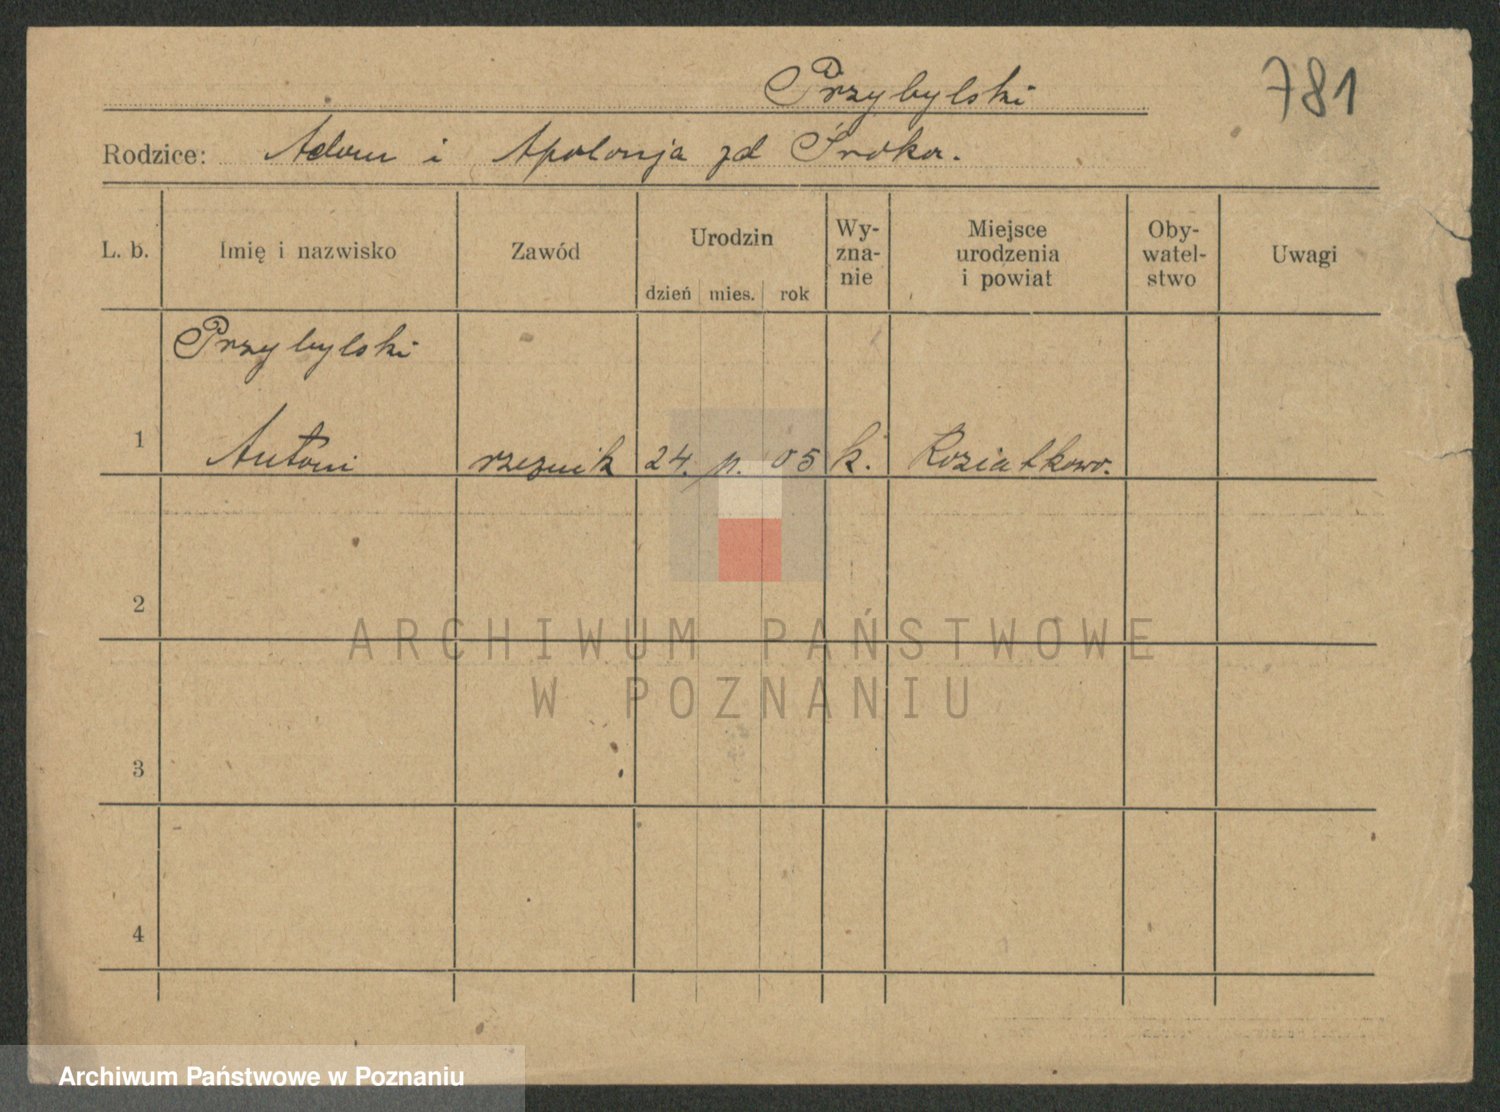 Przybylski
781
Rodzice: Adam i Apolonja zd Sroka.
L. b. Imię i nazwisko Zawód Urodzin dzień mies. rok Wy-zna-nie Miejsce urodzenia i powiat Oby-watel-stwo Uwagi
Przybylski
1 Antoni rzeznik 24. 05 k.
2
3
4
ARCHIWUM PAŃSTWOWE
W POZNANIU
Archiwum Państwowe w Poznaniu